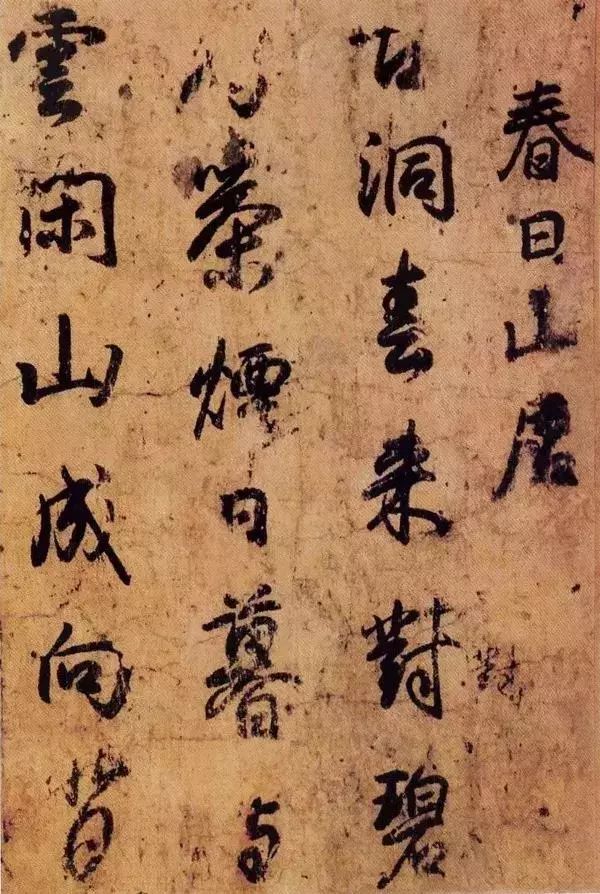 春日山居
對
古洞春来對碧
茶煙日暮与
雲閑山成向背